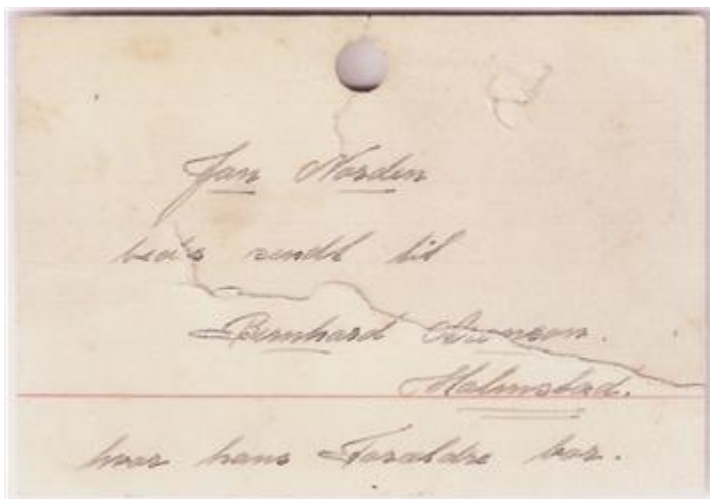 Jan Norden
bedes sendt til
Bernhard
Halmstad.
hvor hans Forældre bor.